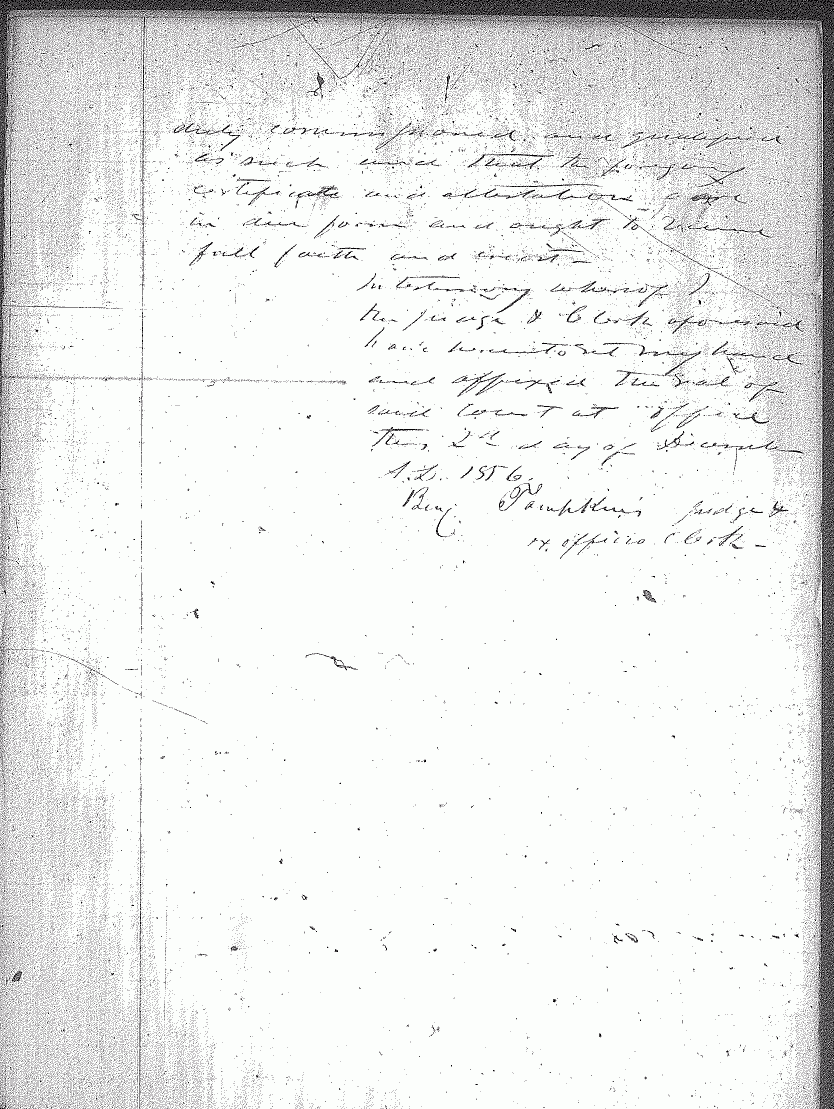 duly commissioned and qualified
as such and that the foregoing
certificate and attestation are
in due form and ought to receive
full faith and credit -
In testimony whereof I
the judge & Clerk aforesaid
have hereunto set my hand
and affixed the seal of
said court at office
this 2nd day of December
A.D. 1856.
Benj Tompkins judge &
ex. officio Clerk -